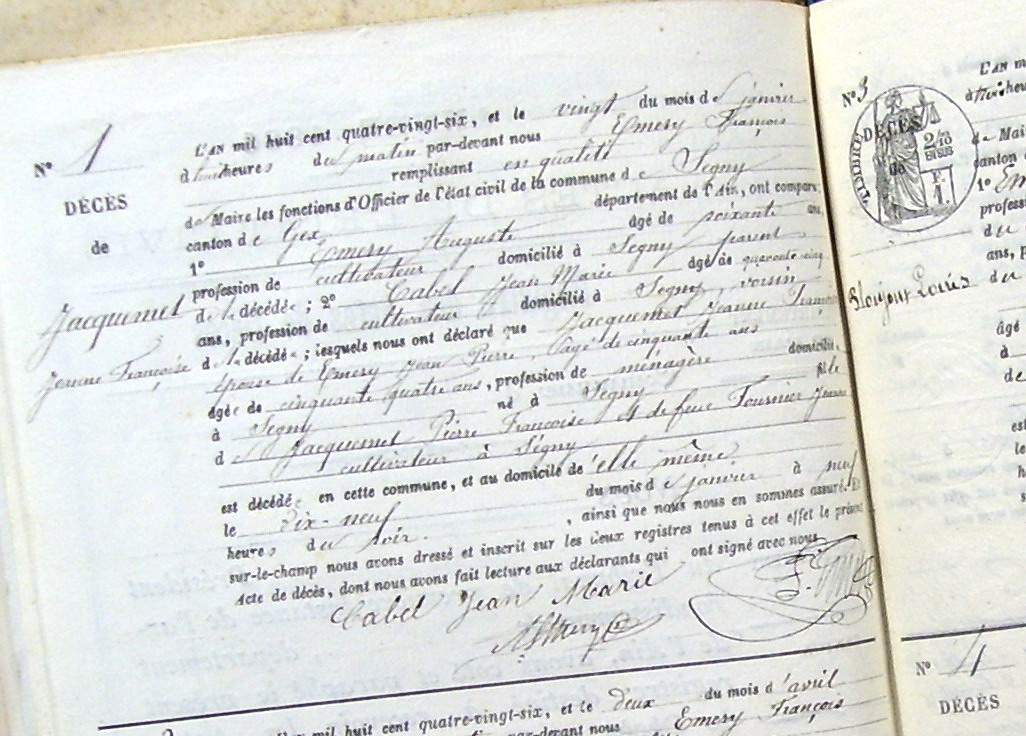 Nº 1
DÉCÈS
de
Jacquemet
Jeanne Françoise
L'AN mil huit cent quatre-vingt-six, et le vingt du mois de janvier
à huit heures du matin par-devant nous Emery François
remplissant en qualité
de Maire les fonctions d'Officier de l'état civil de la commune de Segny
canton de Gex, département de l'Ain, ont comparu:
1º Emery Auguste âgé de soixante ans,
profession de cultivateur domicilié à Segny parent
de la décédée; 2º Cabel Jean Marie âgé de quarante cinq
ans, profession de cultivateur domicilié à Segny, voisin
de la décédée; lesquels nous ont déclaré que Jacquemet Jeanne Françoise
épouse de Emery Jean Pierre, âgé de cinquante ans
âgée de cinquante quatre ans, profession de ménagère domicilié
à Segny né à Segny fille
de Jacquemet Pierre Françoise et de feue Fournier Jeanne
cultivateur à Ségny
est décédée en cette commune, et au domicile de d'elle même
le dix-neuf du mois de janvier à neuf
heures du soir. , ainsi que nous nous en sommes assuré. Et
sur-le-champ nous avons dressé et inscrit sur les deux registres tenus à cet effet le présent
Acte de décès, dont nous avons fait lecture aux déclarants qui ont signé avec nous
Cabel Jean Marie
AEmery
F. Emery
mil huit cent quatre-vingt-six, et le deux du mois d'avril
par-devant nous Emery François
Nº 3
DÉCÈS
de
TIMBRE
2/10
EN SUS
1 F.
Blonjon Louis
L'AN
heu
de Maire
canton
1º Em
profess
du
ans, p
du
âgé
à
de
est
le
h
s
Nº 4
DÉCÈS